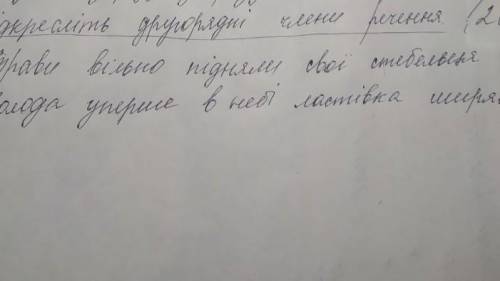 дкресліть другорядні члени речення (2
Трави вільно підняли свої стебельця
олода уперше в небі ластівка ширя